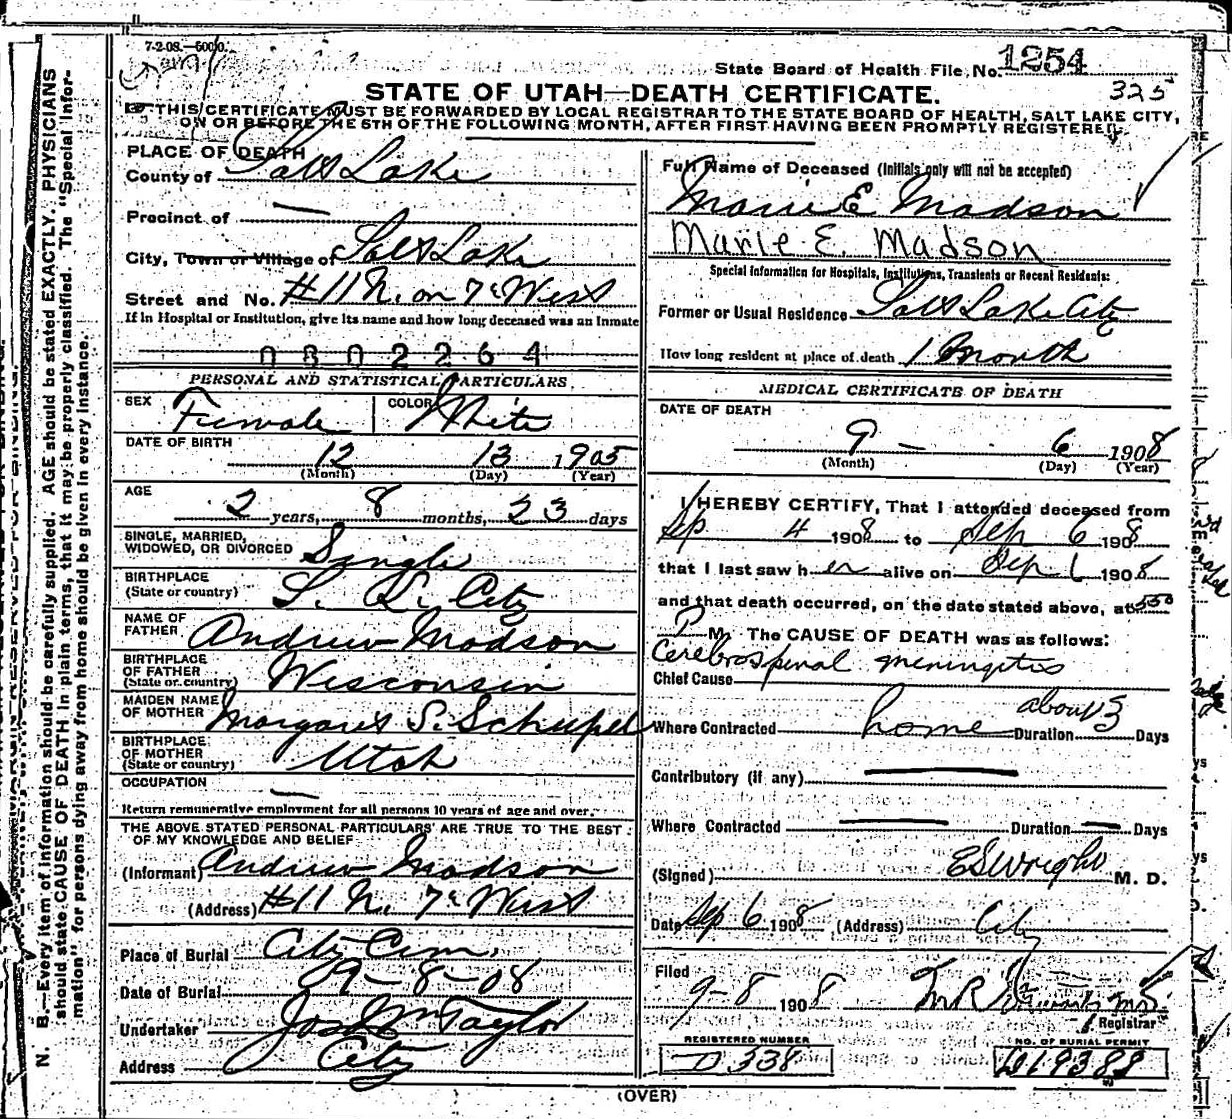 7-2-08.—5000.
State Board of Health File No. 1254
325
STATE OF UTAH—DEATH CERTIFICATE.
THIS CERTIFICATE MUST BE FORWARDED BY LOCAL REGISTRAR TO THE STATE BOARD OF HEALTH, SALT LAKE CITY,
ON OR BEFORE THE 5TH OF THE FOLLOWING MONTH, AFTER FIRST HAVING BEEN PROMPTLY REGISTERED.
PLACE OF DEATH
County of Salt Lake
Precinct of —
City, Town or Village of Salt Lake
Street and No. #11 N. on 7th West
If in Hospital or Institution, give its name and how long deceased was an Inmate
0802264
PERSONAL AND STATISTICAL PARTICULARS
SEX Female COLOR White
DATE OF BIRTH
12 13 1905
(Month) (Day) (Year)
AGE
2 years, 8 months, 23 days
SINGLE, MARRIED,
WIDOWED, OR DIVORCED Single
BIRTHPLACE
(State or country) S. L. City
NAME OF
FATHER Andrew Madson
BIRTHPLACE
OF FATHER
(State or country) Wisconsin
MAIDEN NAME
OF MOTHER Margaret S.
BIRTHPLACE
OF MOTHER
(State or country) Utah
OCCUPATION —
Return remunerative employment for all persons 10 years of age and over.
THE ABOVE STATED PERSONAL PARTICULARS ARE TRUE TO THE BEST
OF MY KNOWLEDGE AND BELIEF
(Informant) Andrew Madson
(Address) #11 N. 7th West
Place of Burial City Cem.
Date of Burial 9-8-08
Undertaker Jos Wm Taylor
Address City
Full Name of Deceased (Initials only will not be accepted)
Marie E Madson
Marie E. Madson
Special Information for Hospitals, Institutions, Transients or Recent Residents:
Former or Usual Residence Salt Lake City
How long resident at place of death 1 Month
MEDICAL CERTIFICATE OF DEATH
DATE OF DEATH
9 — 6 1908
(Month) (Day) (Year)
I HEREBY CERTIFY, That I attended deceased from
Sp 4 1908 to Sep 6 1908
that I last saw her alive on Sep 6 1908
and that death occurred, on the date stated above, at 550
P M. The CAUSE OF DEATH was as follows:
Cerebrospinal meningitis
Chief Cause
Where Contracted home Duration about 3 Days
Contributory (if any) —
Where Contracted — Duration — Days
(Signed) E S Wright M. D.
Date Sep 6 1908 (Address) City
Filed
9-8 1908
Registrar
REGISTERED NUMBER
D 338
NO. OF BURIAL PERMIT
(OVER)
N. B.—Every item of information should be carefully supplied. AGE should be stated EXACTLY. PHYSICIANS
should state CAUSE OF DEATH in plain terms, that it may be properly classified. The "Special Infor-
mation" for persons dying away from home should be given in every instance.